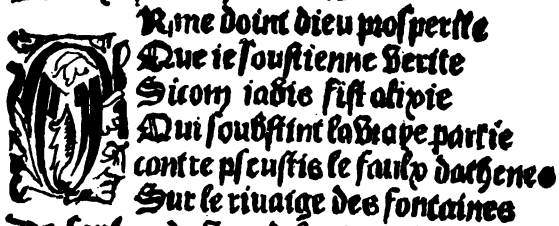 OR me doint dieu prosperite
Que ie soustienne verite
Sicom iadis fist alixie
Qui soubstint la vraye partie
contre pseustis le faulx dathenes
Sur le riuaige des fontaines